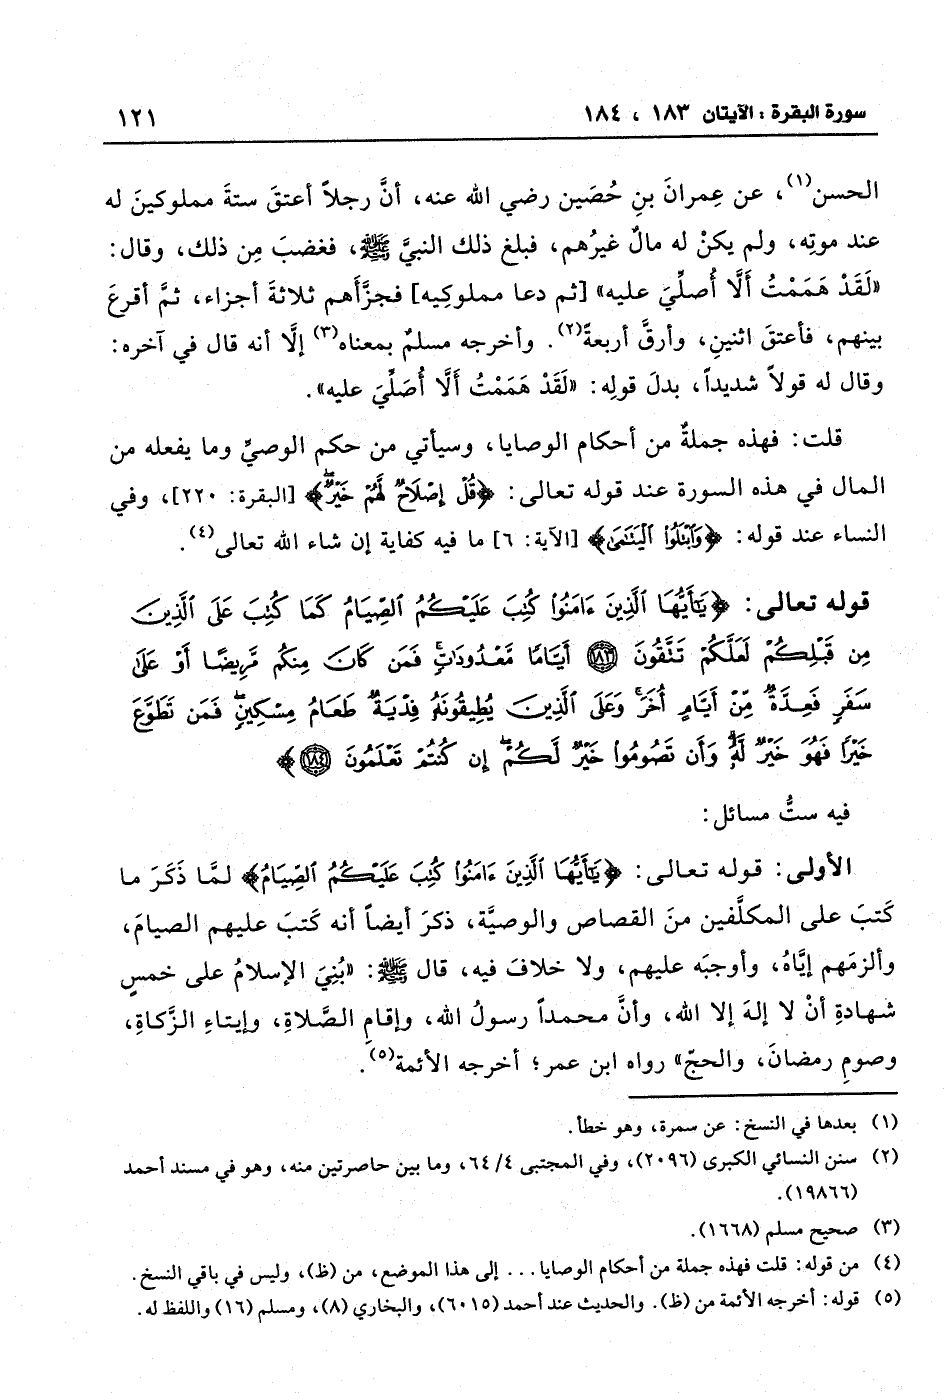 سورة البقرة : الآيتان ١٨٣ ، ١٨٤
١٢١
الحسن(١)، عن عِمرانَ بنِ حُصَين رضي الله عنه، أنَّ رجلاً أعتقَ ستةَ مملوكينَ له
عند موتِه، ولم يكنْ له مالٌ غيرُهم، فبلغ ذلك النبيَّ ﷺ، فغضبَ مِن ذلك، وقال:
«لَقَدْ هَمَمْتُ أَلَّا أُصلِّيَ عليه» [ثم دعا مملوكِيه] فجزَّأَهم ثلاثةَ أجزاء، ثمَّ أقرعَ
بينهم، فأعتقَ اثنينِ، وأرقَّ أربعةً(٢). وأخرجه مسلمٌ بمعناه(٣) إلَّا أنه قال في آخره:
وقال له قولاً شديداً، بدلَ قولِه: «لَقَدْ هَمَمْتُ أَلَّا أُصَلِّيَ عليه».
قلت: فهذه جملةٌ من أحكام الوصايا، وسيأتي من حكم الوصيِّ وما يفعله من
المال في هذه السورة عند قوله تعالى: ﴿قُلْ إِصْلَاحٌ لَّهُمْ خَيْرٌ﴾ [البقرة: ٢٢٠]، وفي
النساء عند قوله: ﴿وَٱبْتَلُوا۟ ٱلْيَتَـٰمَىٰ﴾ [الآية: ٦] ما فيه كفاية إن شاء الله تعالى(٤).
قوله تعالى: ﴿يَـٰٓأَيُّهَا ٱلَّذِينَ ءَامَنُوا۟ كُتِبَ عَلَيْكُمُ ٱلصِّيَامُ كَمَا كُتِبَ عَلَى ٱلَّذِينَ
مِن قَبْلِكُمْ لَعَلَّكُمْ تَتَّقُونَ ١٨٣ أَيَّامًا مَّعْدُودَٰتٍ ۚ فَمَن كَانَ مِنكُم مَّرِيضًا أَوْ عَلَىٰ
سَفَرٍ فَعِدَّةٌ مِّنْ أَيَّامٍ أُخَرَ ۚ وَعَلَى ٱلَّذِينَ يُطِيقُونَهُۥ فِدْيَةٌ طَعَامُ مِسْكِينٍ ۖ فَمَن تَطَوَّعَ
خَيْرًا فَهُوَ خَيْرٌ لَّهُۥ ۚ وَأَن تَصُومُوا۟ خَيْرٌ لَّكُمْ ۖ إِن كُنتُمْ تَعْلَمُونَ ١٨٤﴾
فيه ستُّ مسائل:
الأولى: قوله تعالى: ﴿يَـٰٓأَيُّهَا ٱلَّذِينَ ءَامَنُوا۟ كُتِبَ عَلَيْكُمُ ٱلصِّيَامُ﴾ لمَّا ذَكَرَ ما
كَتبَ على المكلَّفين منَ القصاص والوصيَّة، ذكرَ أيضاً أنه كَتبَ عليهم الصيامَ،
وألزمَهم إيَّاهُ، وأوجبَه عليهم، ولا خلافَ فيه، قال ﷺ: «بُنِيَ الإسلامُ على خمسٍ
شهادةِ أنْ لا إلهَ إلا الله، وأنَّ محمداً رسولُ الله، وإقامِ الصَّلاةِ، وإيتاءِ الزَّكاةِ،
وصومِ رمضانَ، والحجّ» رواه ابن عمر؛ أخرجه الأئمة(٥).
(١) بعدها في النسخ: عن سمرة، وهو خطأ.
(٢) سنن النسائي الكبرى (٢٠٩٦)، وفي المجتبى ٦٤/٤، وما بين حاصرتين منه، وهو في مسند أحمد
(١٩٨٦٦).
(٣) صحيح مسلم (١٦٦٨).
(٤) من قوله: قلت فهذه جملة من أحكام الوصايا... إلى هذا الموضع، من (ظ)، وليس في باقي النسخ.
(٥) قوله: أخرجه الأئمة من (ظ). والحديث عند أحمد (٦٠١٥)، والبخاري (٨)، ومسلم (١٦) واللفظ له.